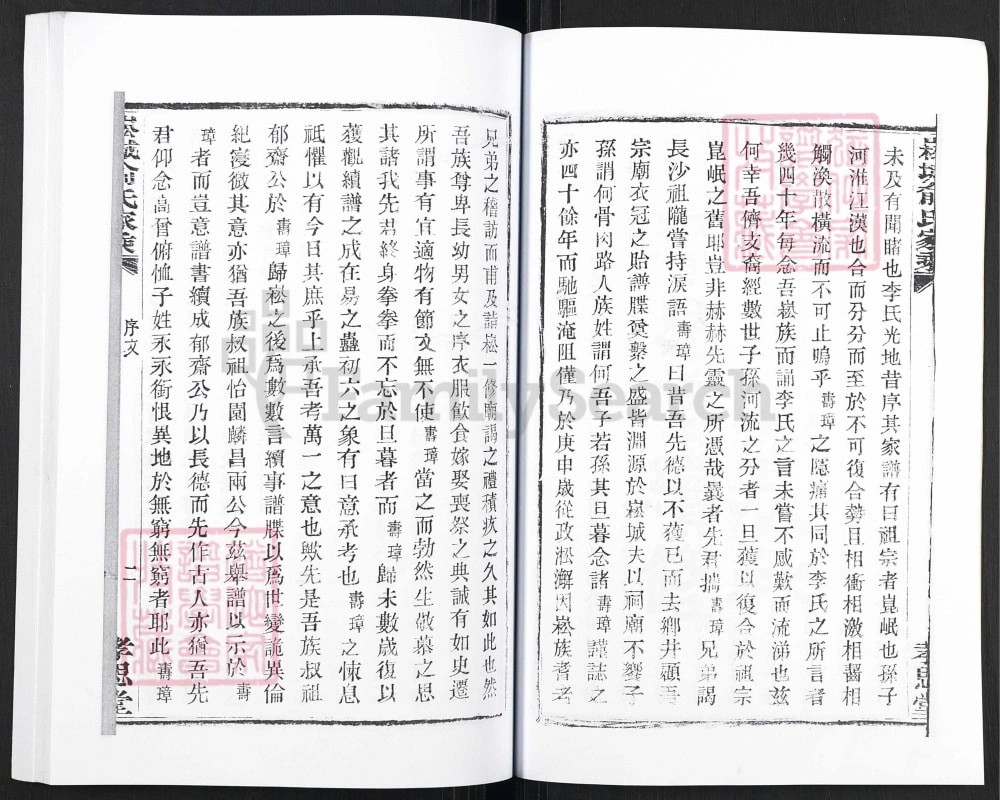 未及有聞睹也李氏光地昔序其家譜有曰祖宗者崑岷也孫子
河淮江漢也合而分分而至於不可復合勢且相衝相激相齧相
觸渙散橫流而不可止嗚乎壽璋之隱痛其同於李氏之所言者
幾四十年每念吾崧族而誦李氏之言未嘗不感歎而流涕也茲
何幸吾儕支裔經數世子孫河流之分者一旦獲以復合於祖宗
崑岷之舊耶豈非赫赫先靈之所憑哉曩者先君揣壽璋兄弟謁
長沙祖隴嘗持淚語壽璋曰昔吾先德以不獲已而去鄉井顧吾
宗廟衣冠之貽譜牒爰繫之盛皆淵源於崧城夫以祠廟不饗子
孫謂何骨肉路人族姓謂何吾子若孫其旦暮念諸壽璋謹誌之
亦四十餘年而馳驅淹阻僅乃於庚申歲從政淞澥因崧族耆考
孝思堂
兄弟之稽訪而甫及詣崧一修廟謁之禮積疚之久其如此也然
吾族尊卑長幼男女之序衣服飲食嫁娶喪祭之典誠有如史遷
所謂事有宜適物有節文無不使壽璋當之而勃然生敬慕之思
其諸我先君終身拳拳而不忘於旦暮者而壽璋歸未數歲復以
獲觀續譜之成在易之蠱初六之象有曰意承考也壽璋之悚息
祗懼以有今日其庶乎上承吾考萬一之意也歟先是吾族叔祖
郁齋公於壽璋歸崧之後爲數數言續事譜牒以爲世變詭異倫
紀寖微其意亦猶吾族叔祖怡園麟昌兩公今茲舉譜以示於壽
璋者而豈意譜書續成郁齋公乃以長德而先作古人亦猶吾先
君仰念高曾俯恤子姓永永銜恨異地於無窮無窮者耶此壽璋
序文
二
孝思堂
FamilySearch